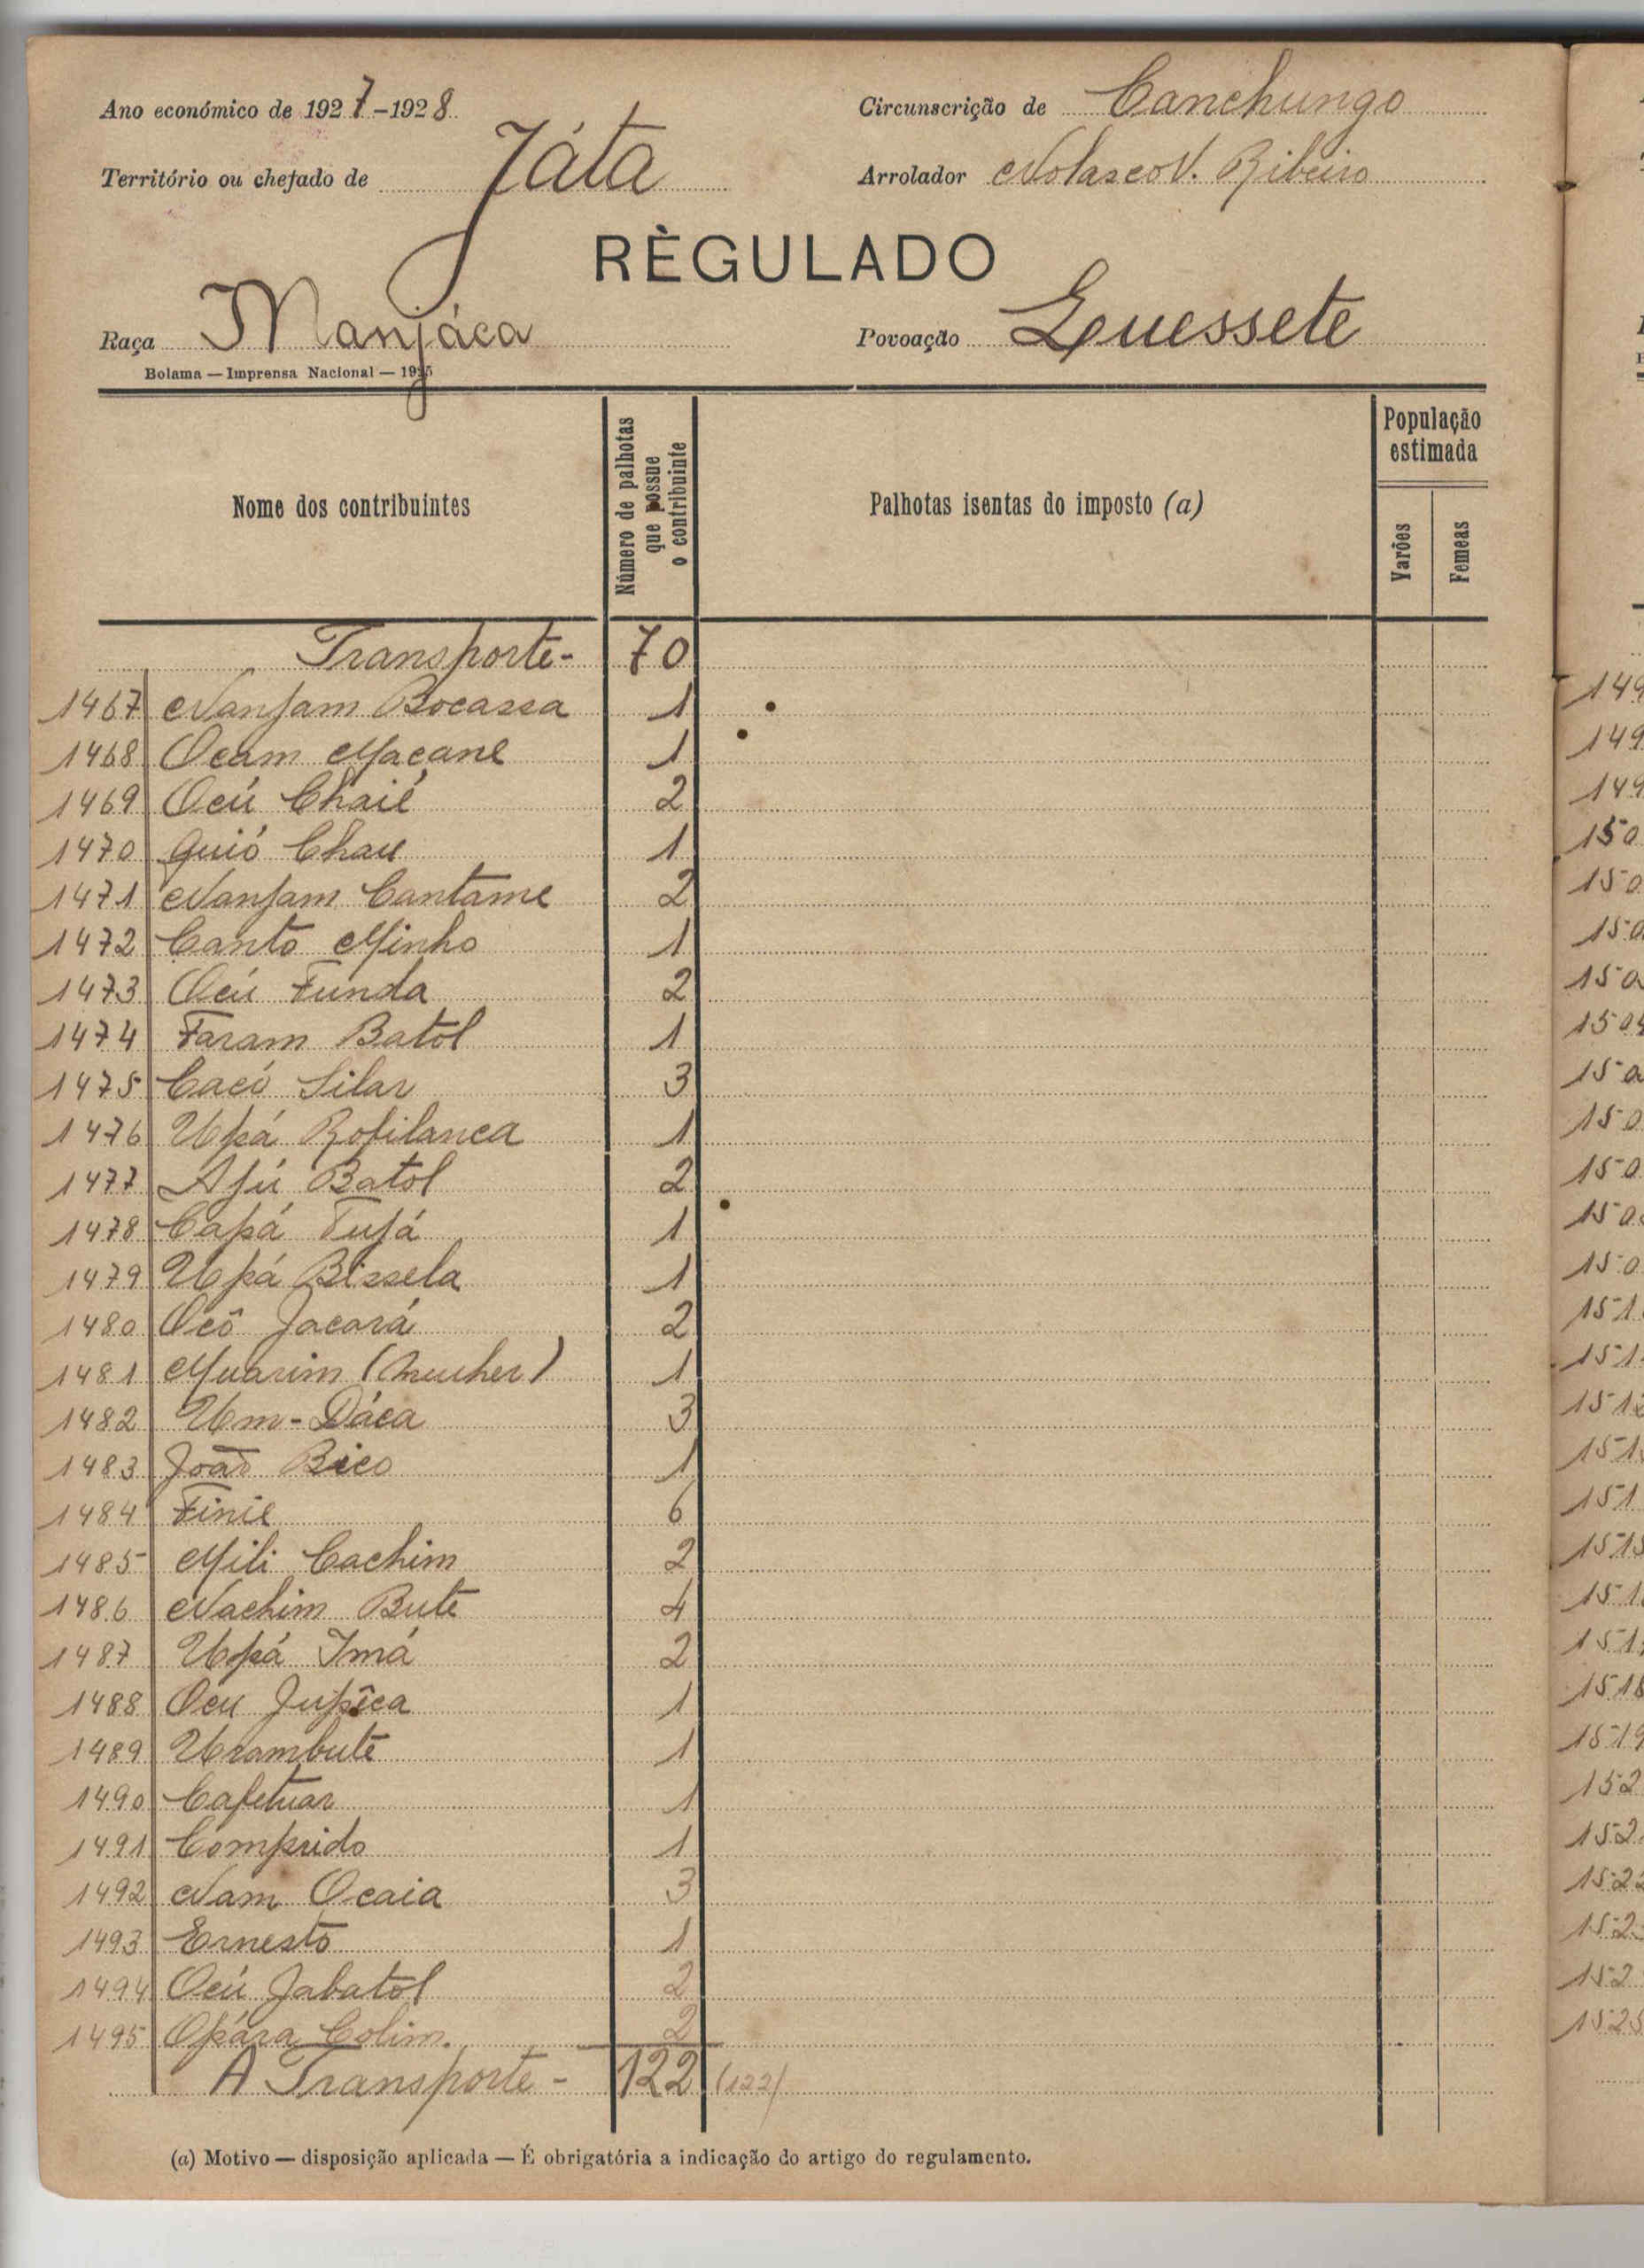 Ano económico de 1927-1928
Circunscrição de Canchungo
Território ou chefado de Játa
Arrolador Nolasco V. Ribeiro
RÈGULADO
Raça Manjáca
Povoação
Bolama — Imprensa Nacional — 1925
Nome dos contribuintes
Número de palhotas
que possue
o contribuinte
Palhotas isentas do imposto (a)
População
estimada
Varões
Femeas
Transporte- 70
1467 Nanjam Bocassa 1
1468 Ocam Maçane 1
1469 Ocú Chaié 2
1470 Quió Chau 1
1471 Nanjam Cantame 2
1472 Canto Minho 1
1473 Ocú Funda 2
1474 Faram Batol 1
1475 Cacó Silar 3
1476 Upá 1
1477 Afú Batol 2
1478 Capá Tufá 1
1479 Upá Bissela 1
1480 Ocô Jacará 2
1481 Muarim (Mulher) 1
1482 Um-Dáca 3
1483 João Bico 1
1484 Finie 6
1485 Mili Cachim 2
1486 Nachim Bute 4
1487 Upá Imá 2
1488 Ocu 1
1489 Urambute 1
1490 Cafetuar 1
1491 Comprido 1
1492 Nam Ocaia 3
1493 Ernesto 1
1494 Ocú Jabatol 2
1495 Opára Colim. 2
A Transporte - 122 (122)
(a) Motivo — disposição aplicada — É obrigatória a indicação do artigo do regulamento.